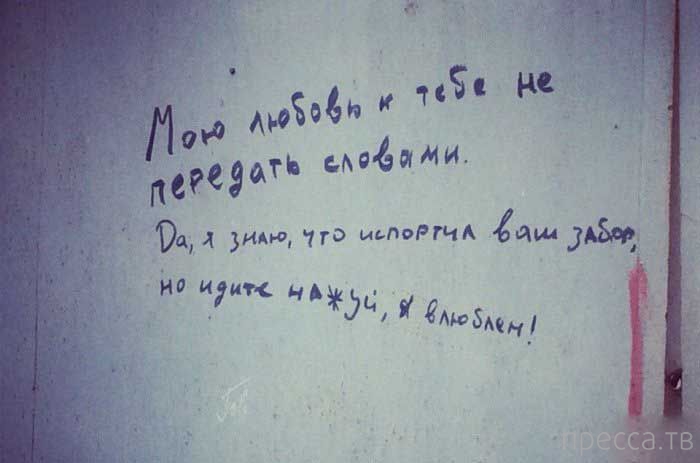 Мою любовь к тебе не
передать словами.
Да, я знаю, что испортил ваш забор,
но идите нажуй, я влюблен!
пресса.тв